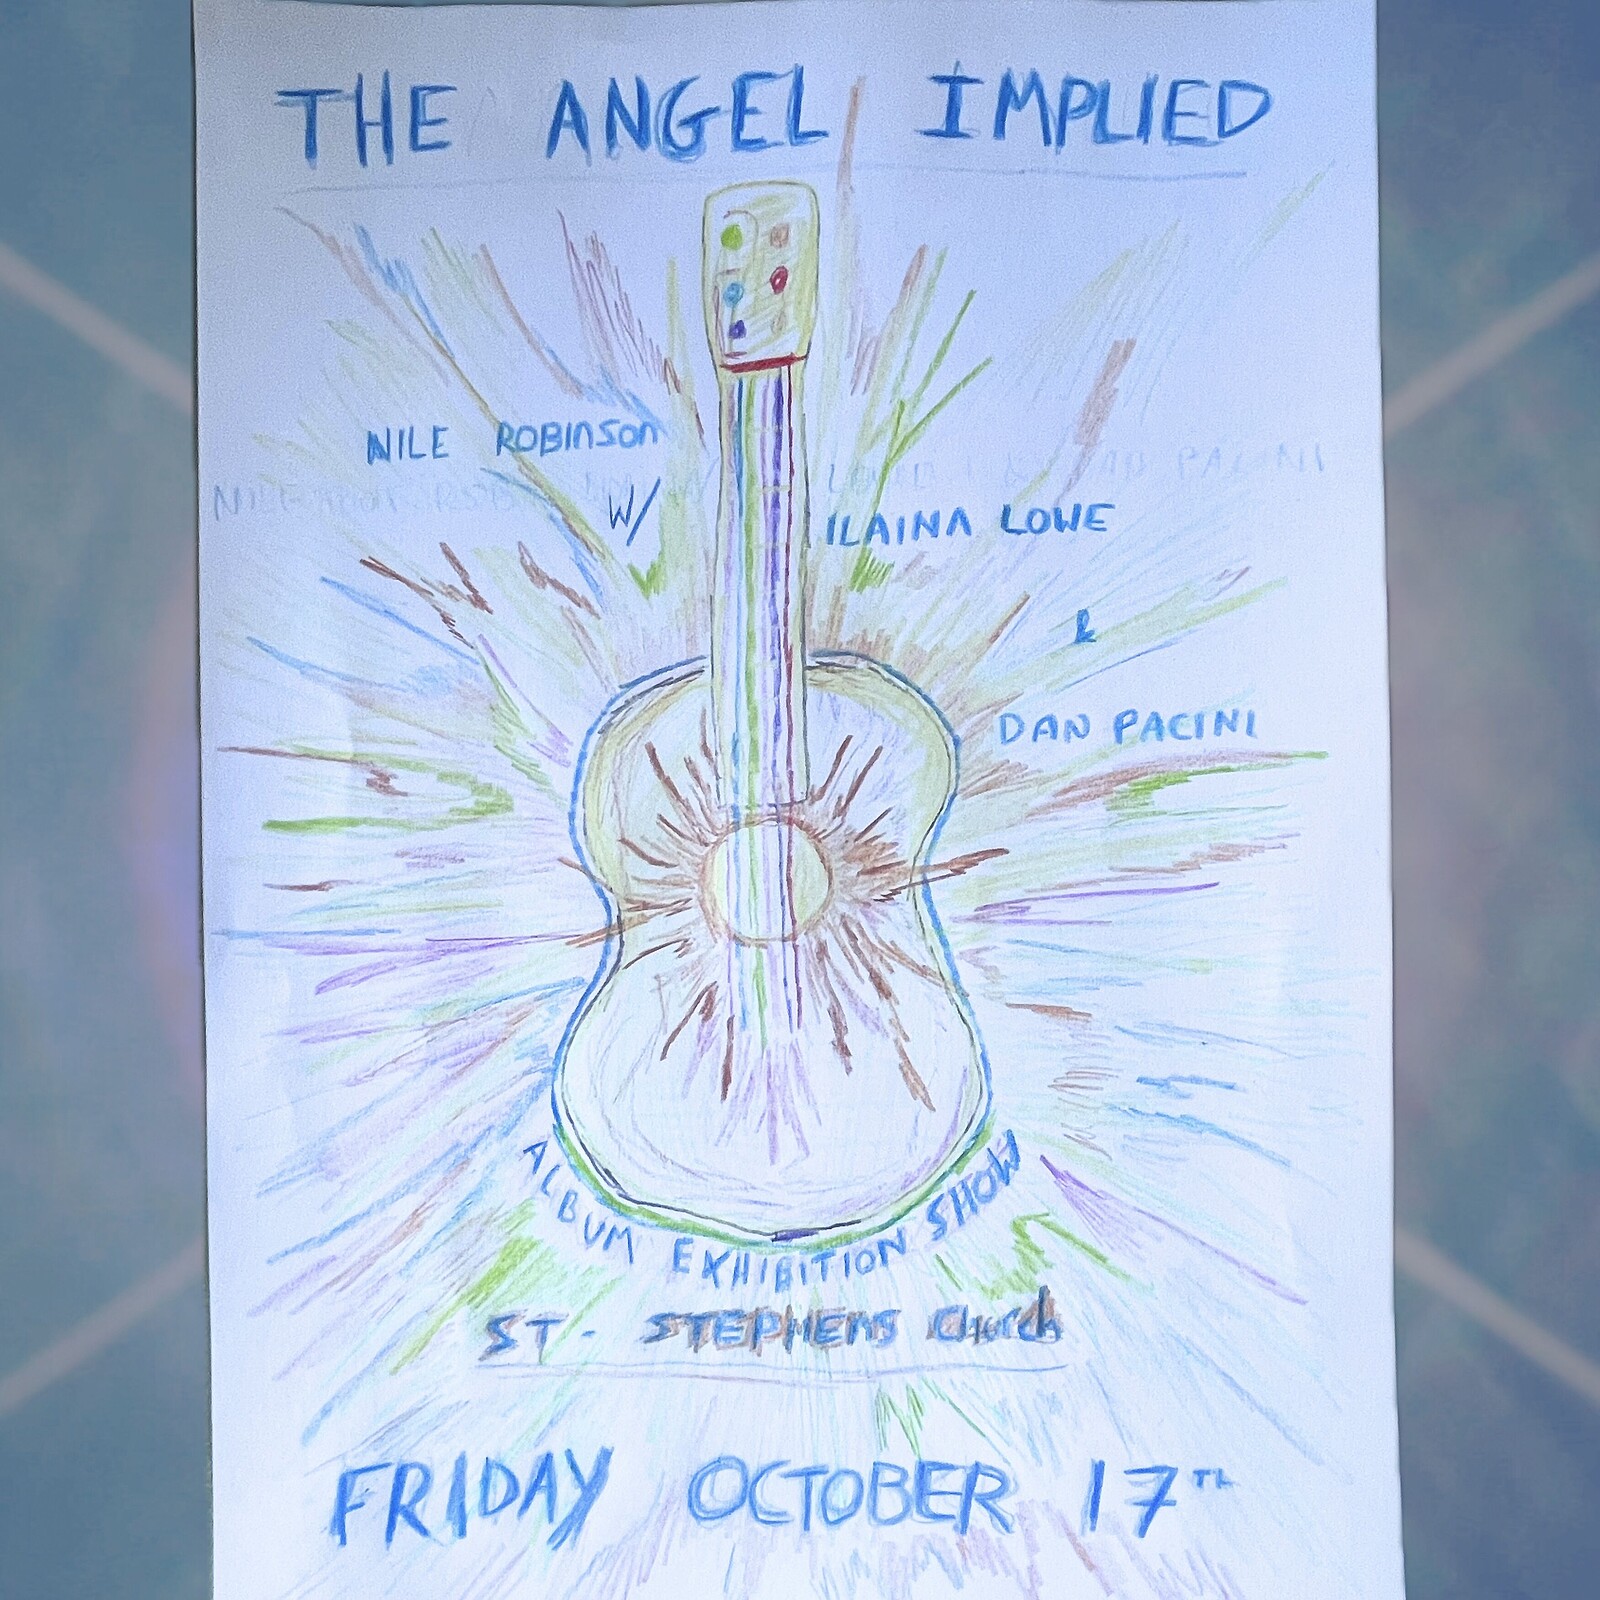 THE ANGEL IMPLIED
NILE ROBINSON
W/
ILAINA LOWE
&
DAN PACINI
ALBUM EXHIBITION SHOW
ST. STEPHENS Church
FRIDAY OCTOBER 17TH